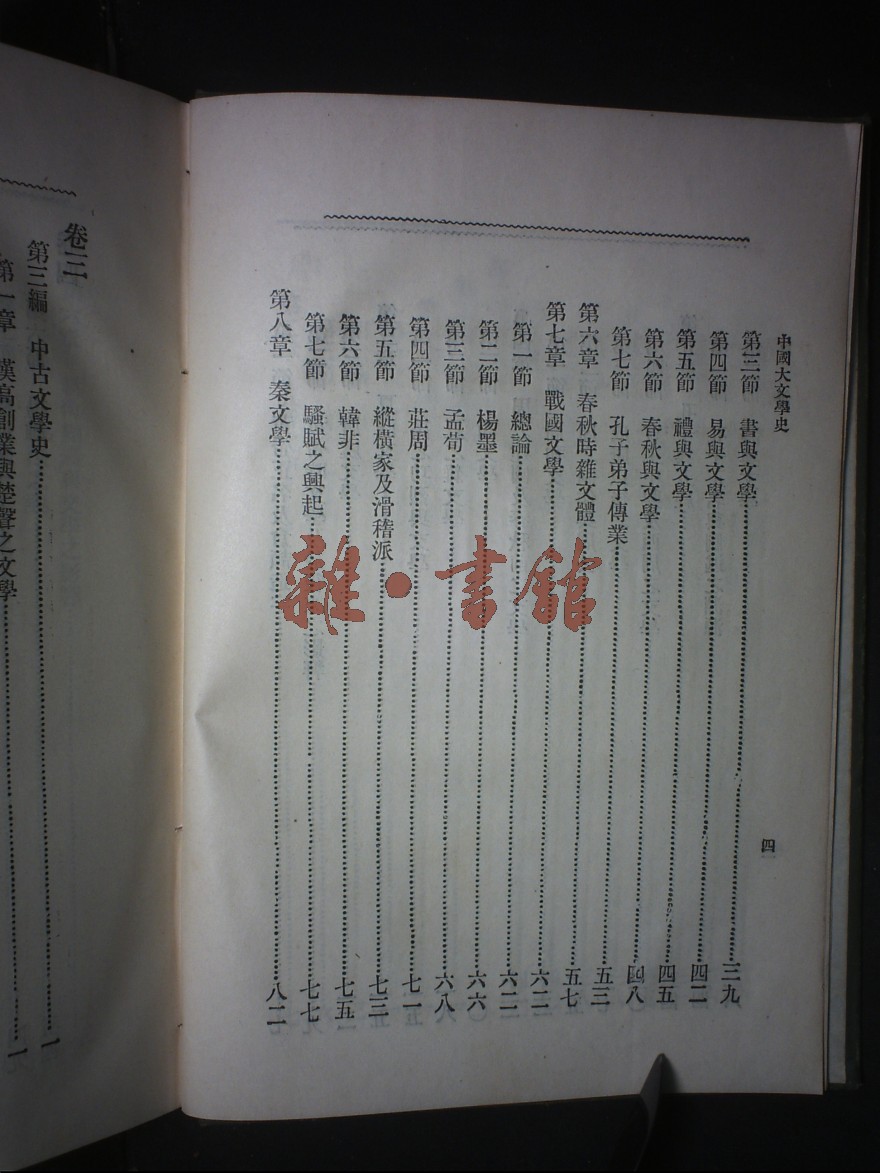 中國大文學史
四
第三節 書與文學 三九
第四節 易與文學 四二
第五節 禮與文學 四五
第六節 春秋與文學 四八
第七節 孔子弟子傳業 五三
第六章 春秋時雜文體 五七
第七章 戰國文學 六二
第一節 總論 六二
第二節 楊墨 六六
第三節 孟荀 六八
第四節 莊周 七一
第五節 縱橫家及滑稽派 七三
第六節 韓非 七五
第七節 騷賦之興起 七七
第八章 秦文學 八二
卷三
第三編 中古文學史 一
第一章 漢高創業與楚聲之文學 一
雜·書館